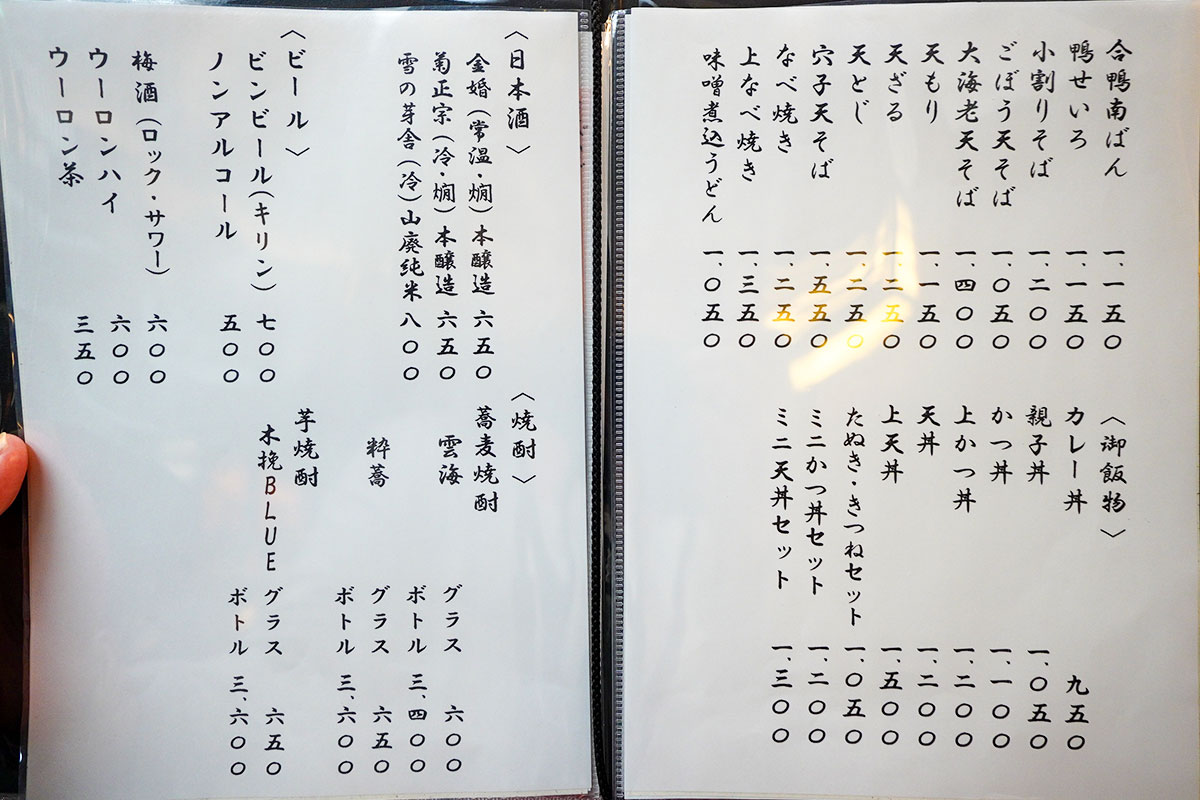 合鴨南ばん 一、一五〇
鴨せいろ 一、一五〇
小割りそば 一、二〇〇
ごぼう天そば 一、〇五〇
大海老天そば 一、四〇〇
天もり 一、一五〇
天ざる 一、二五〇
天とじ 一、二五〇
穴子天そば 一、五五〇
なべ焼き 一、二五〇
上なべ焼き 一、三五〇
味噌煮込うどん 一、〇五〇
〈御飯物〉
カレー丼 九五〇
親子丼 一、〇五〇
かつ丼 一、一〇〇
上かつ丼 一、二〇〇
天丼 一、二〇〇
上天丼 一、五〇〇
たぬき・きつねセット 一、〇五〇
ミニかつ丼セット 一、二〇〇
ミニ天丼セット 一、三〇〇
〈日本酒〉
金婚(常温・燗)本醸造 六五〇
菊正宗(冷・燗)本醸造 六五〇
雪の芽舎(冷)山廃純米 八〇〇
〈ビール〉
ビンビール(キリン) 七〇〇
ノンアルコール 五〇〇
梅酒(ロック・サワー) 六〇〇
ウーロンハイ 六〇〇
ウーロン茶 三五〇
〈焼酎〉
蕎麦焼酎
雲海 グラス 六〇〇
ボトル 三、四〇〇
粋蕎 グラス 六五〇
ボトル 三、六〇〇
芋焼酎
木挽BLUE グラス 六五〇
ボトル 三、六〇〇